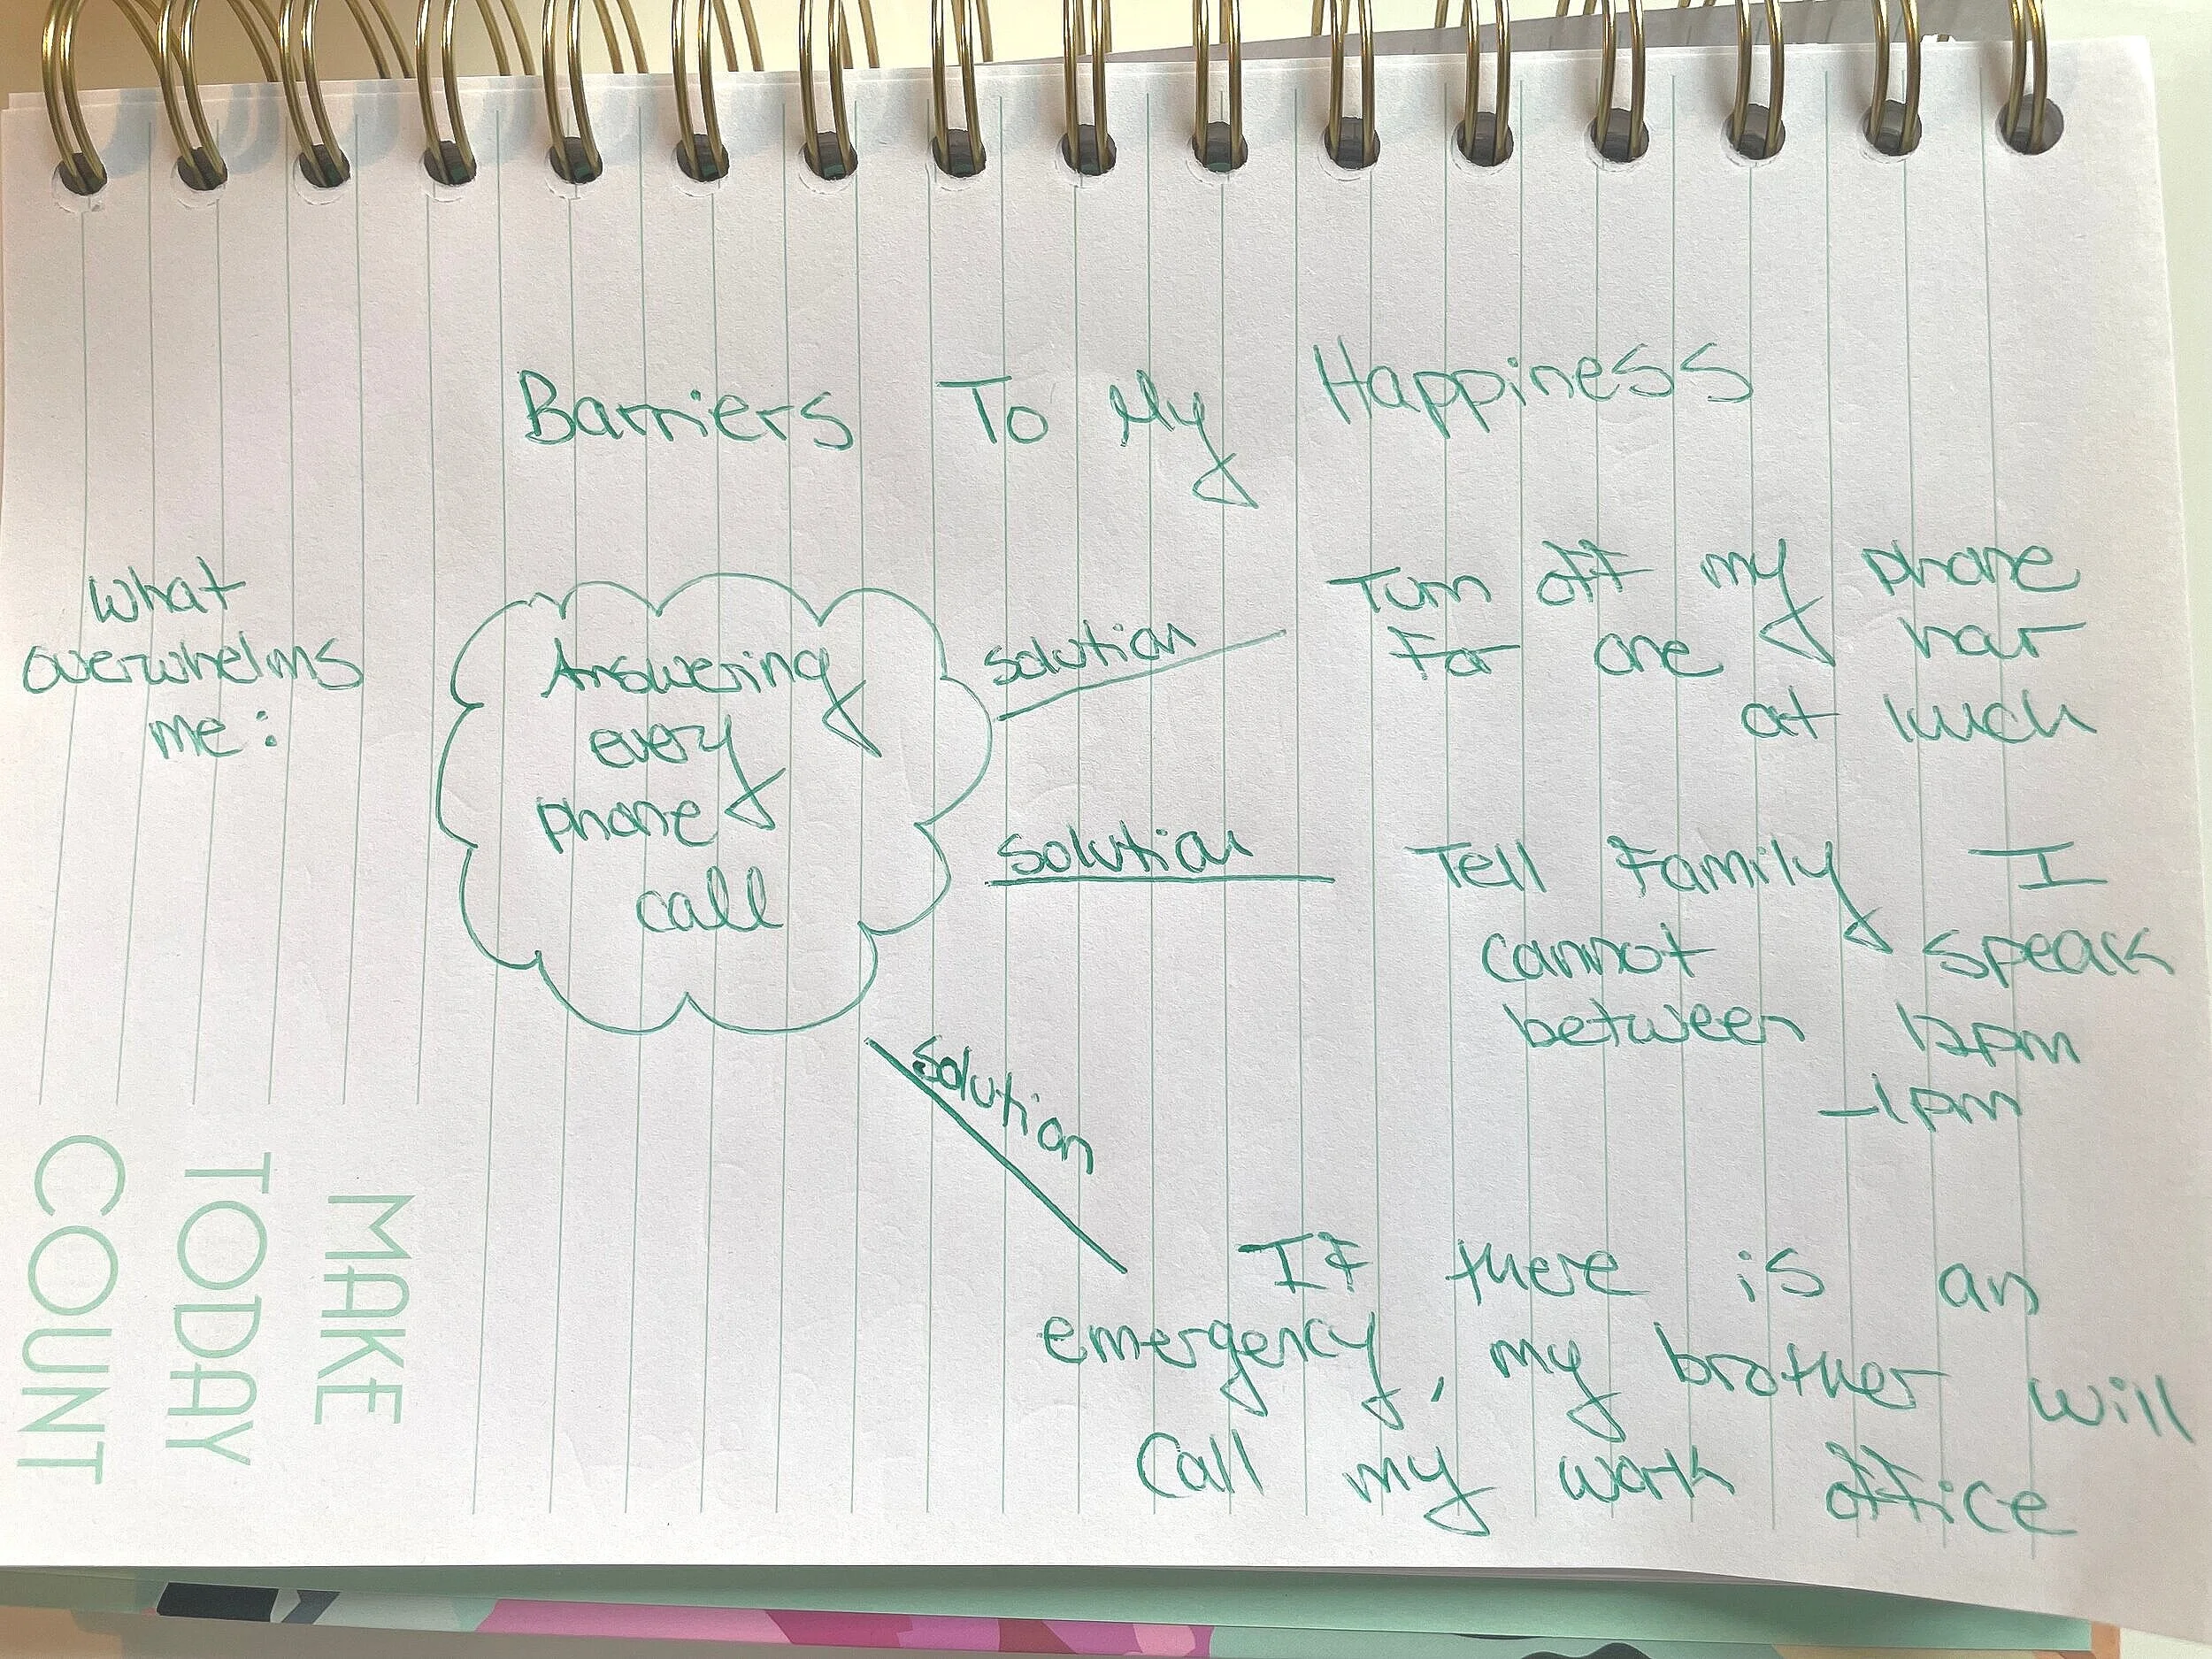 Barriers To My Happiness
What
overwhelms
me:
Answering
every
phone
call
solution
Turn off my phone
For one hour
at lunch
solution
Tell Family I
cannot speak
between 12pm
-1pm
solution
IF there is an
emergency, my brother will
Call my work office
MAKE
TODAY
COUNT